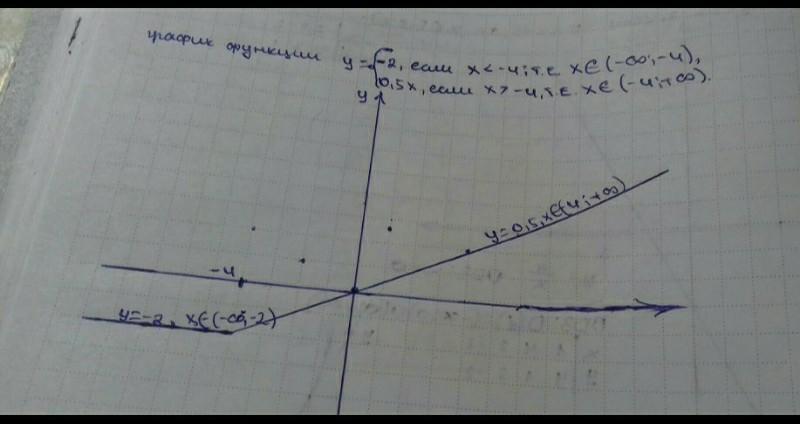 график функции y={-2, если x<-4; т.е. x∈(-∞;-4),
0,5x, если x>-4, т.е. x∈(-4;+∞).
y
y=0,5, x∈(-4;+∞)
-4
y=-2, x∈(-∞;-2)